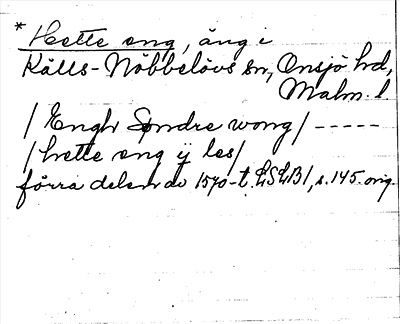 * Hette eng, äng i
Källs-Nöbbelövs sn, Onsjö hd,
Malm. l
/Engh Søndre wong/ -----
/hette eng ÿ les/
förra delen av 1570-t. LSLB1, s. 145. orig.